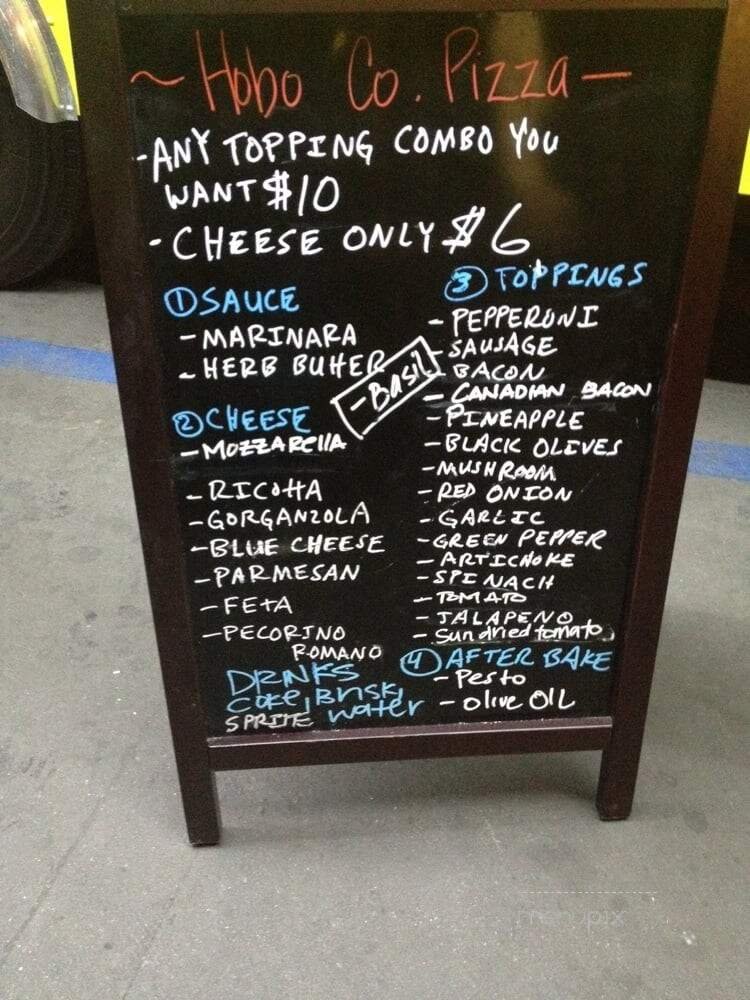 ~ Hobo Co. Pizza —
- ANY TOPPING COMBO YOU
WANT $10
- CHEESE ONLY $6
① SAUCE
- MARINARA
- HERB BUTTER
② CHEESE
- MOZZARELLA
- RICOTTA
- GORGANZOLA
- BLUE CHEESE
- PARMESAN
- FETA
- PECORINO
ROMANO
DRINKS
COKE, Brisk,
SPRITE water
③ TOPPINGS
- PEPPERONI
- SAUSAGE
- BACON
- Basil
- CANADIAN BACON
- PINEAPPLE
- BLACK OLIVES
- MUSHROOM
- RED ONION
- GARLIC
- GREEN PEPPER
- ARTICHOKE
- SPINACH
- TOMATO
- JALAPENO
- Sundried tomato
④ AFTER BAKE
- Pesto
- olive OIL
menupix